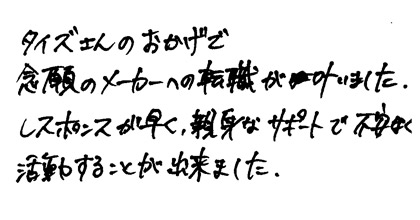 タイズさんのおかげで
念願のメーカーへの転職が叶いました.
レスポンスが早く,親身なサポートで不安なく
活動することが出来ました.